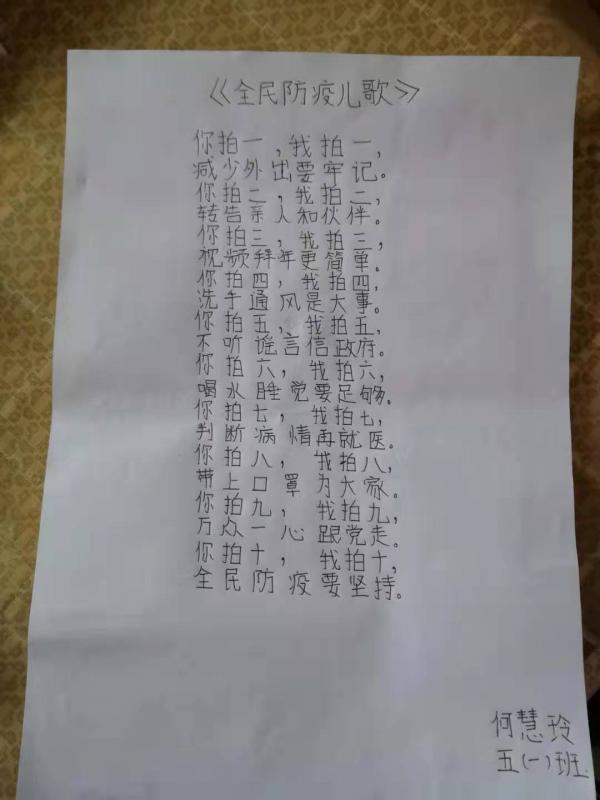 《全民防疫儿歌》
你拍一,我拍一,
减少外出要牢记。
你拍二,我拍二,
转告亲人和伙伴。
你拍三,我拍三,
视频拜年更简单。
你拍四,我拍四,
洗手通风是大事。
你拍五,我拍五,
不听谣言信政府。
你拍六,我拍六,
喝水睡觉要足够。
你拍七,我拍七,
判断病情再就医。
你拍八,我拍八,
带上口罩为大家。
你拍九,我拍九,
万众一心跟党走。
你拍十,我拍十,
全民防疫要坚持。
何慧玲
五(一)班